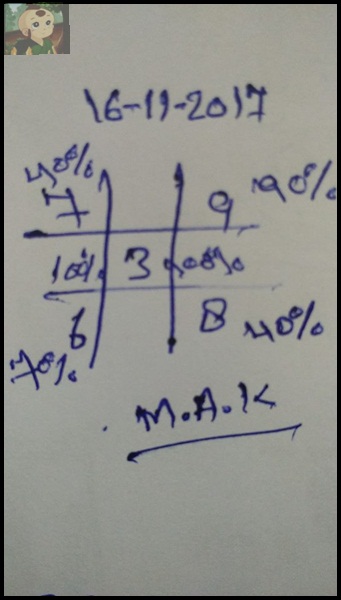 16-11-2017
40%
7 9 90%
100% 3 100%
6 8 40%
70%
M.A.K